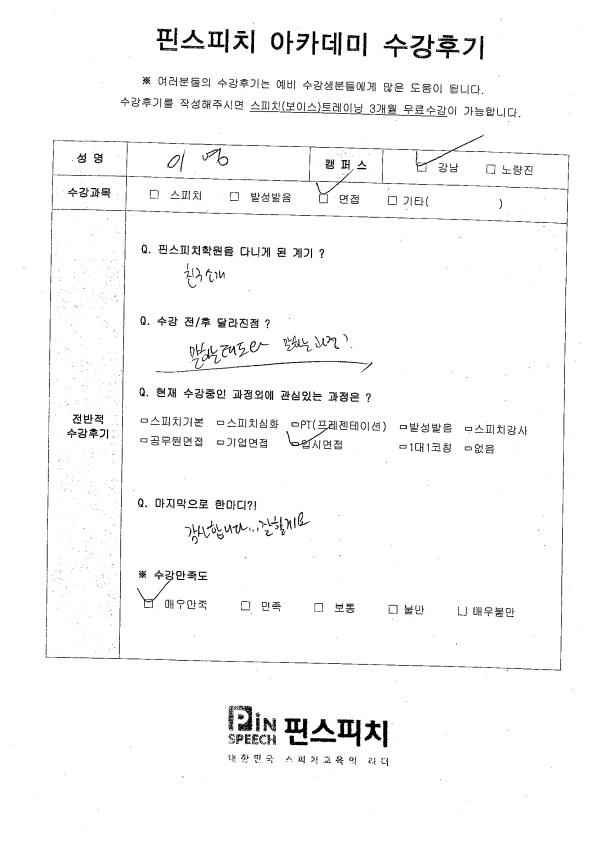 핀스피치 아카데미 수강후기
※ 여러분들의 수강후기는 예비 수강생분들에게 많은 도움이 됩니다.
수강후기를 작성해주시면 스피치(보이스)트레이닝 3개월 무료수강이 가능합니다.
성 명 이 영 캠 퍼 스 □ 강남 □ 노량진
수강과목 □ 스피치 □ 발성발음 □ 면접 □ 기타( )
Q. 핀스피치학원을 다니게 된 계기 ?
친구소개
Q. 수강 전/후 달라진점 ?
말하는태도와 말하는
Q. 현재 수강중인 과정외에 관심있는 과정은 ?
전반적
수강후기
□스피치기본 □스피치심화 □PT(프레젠테이션) □발성발음 □스피치강사
□공무원면접 □기업면접 □입시면접 □1대1코칭 □없음
Q. 마지막으로 한마디?!
감사합니다...잘할게요
※ 수강만족도
□ 매우만족 □ 만족 □ 보통 □ 불만 □ 매우불만
PiN
SPEECH 핀스피치
대한민국 스피치교육의 리더